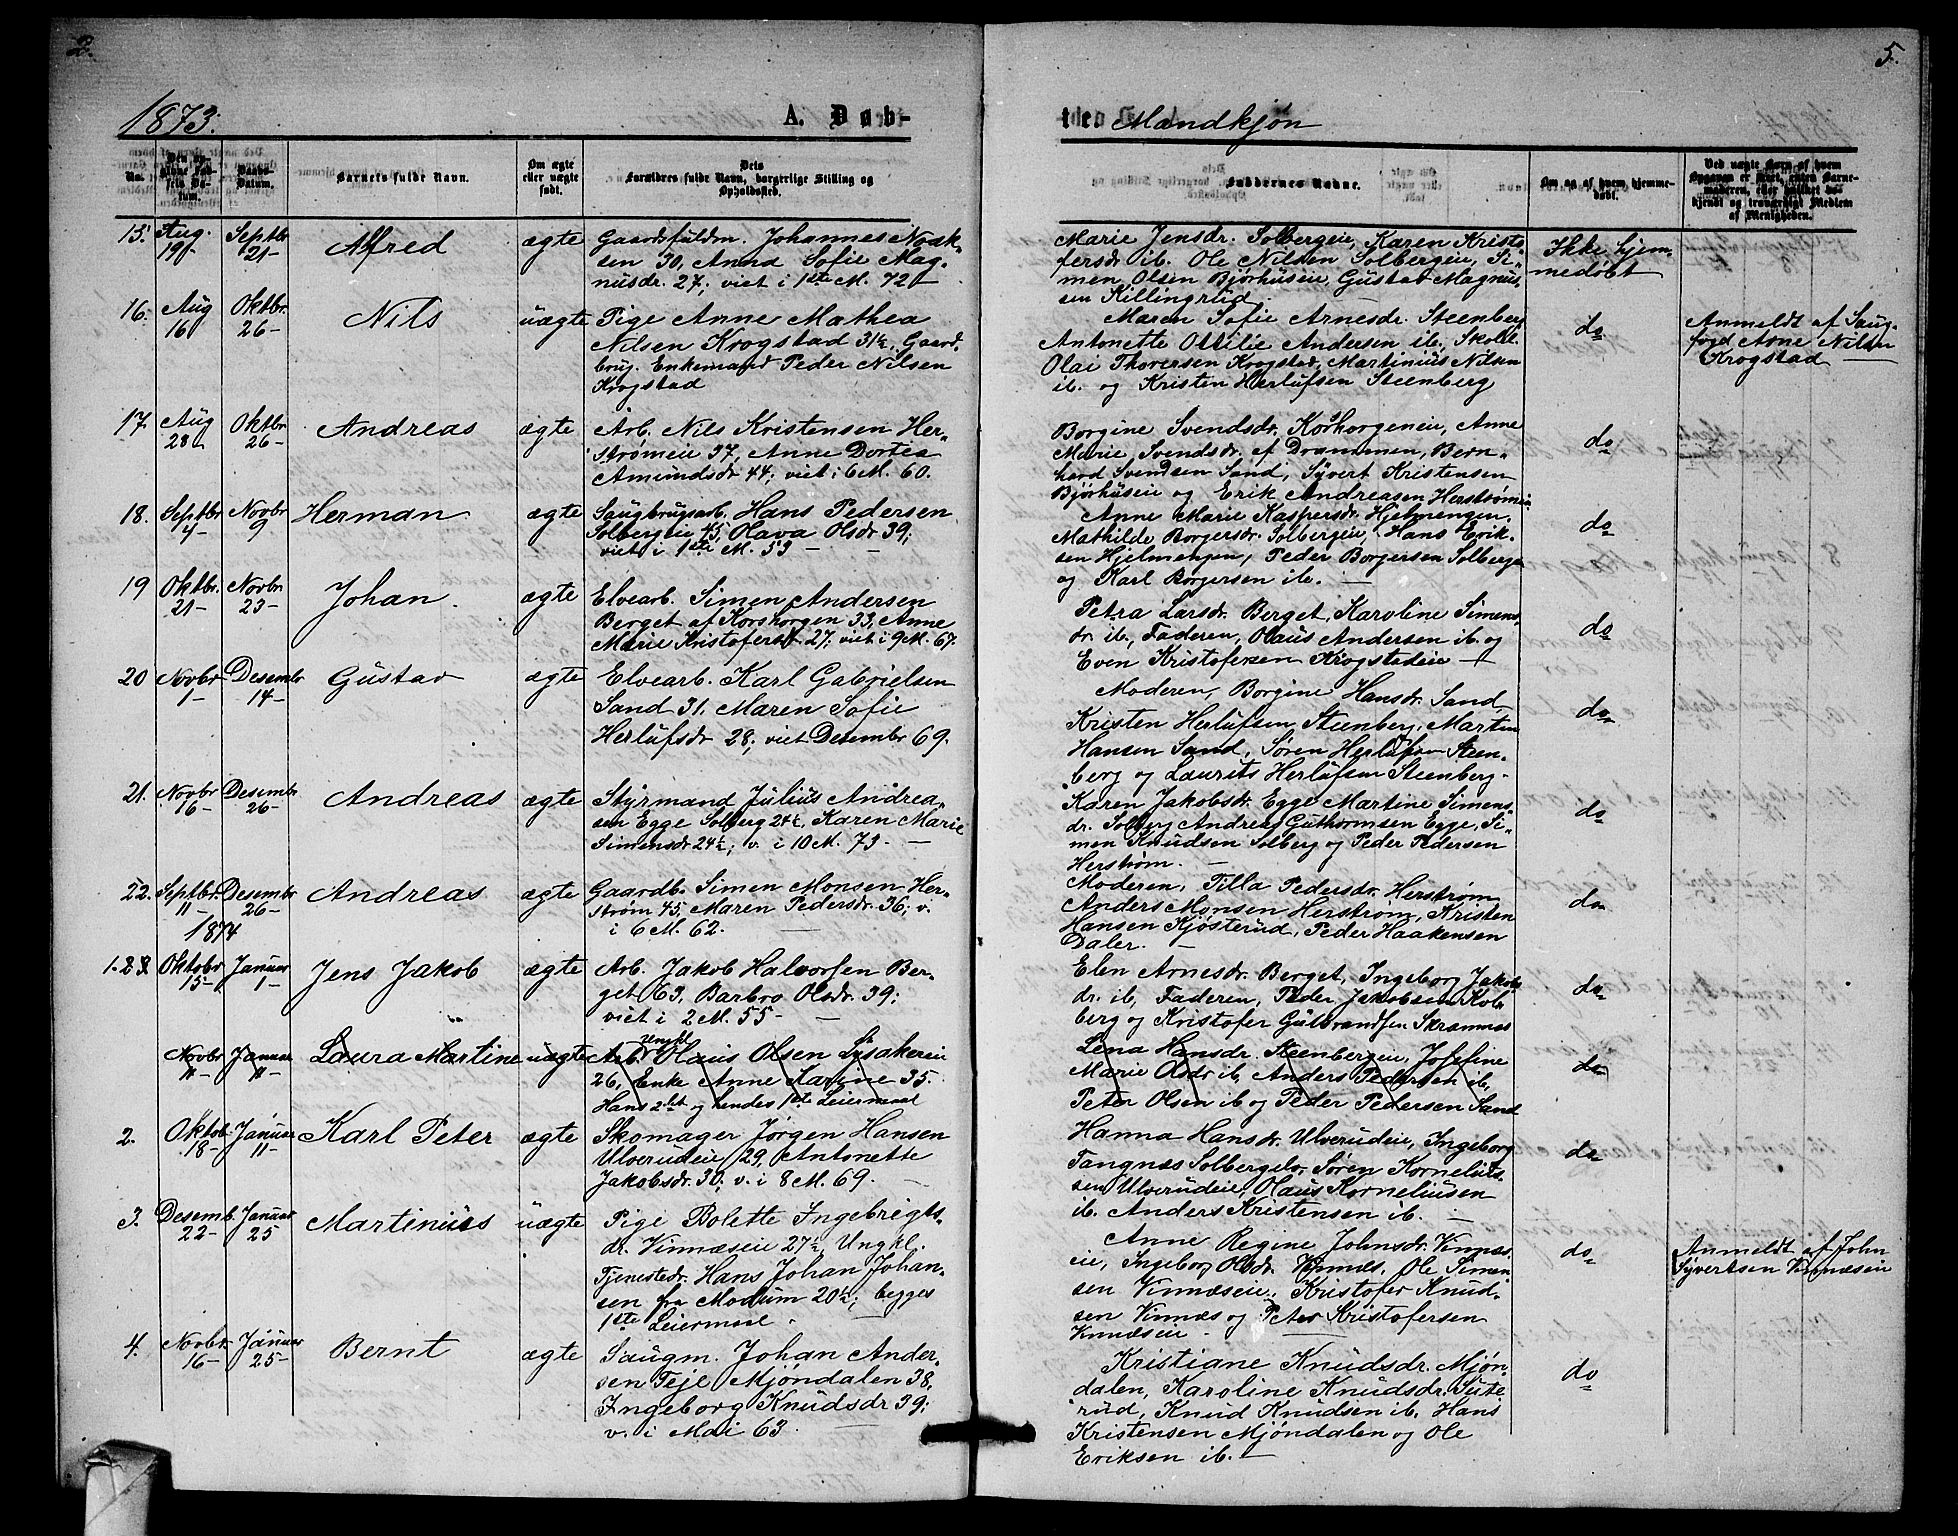 2.
5.
1873.
A. Døb-
te. Mandkjøn
No.
Den opgivne Fødsels Datum.
Daabs-Datum.
Barnets fulde Navn.
Om ægte eller uægte født.
Dets Forældres fulde Navn, borgerlige Stilling og Opholdssted.
Faddernes Navne.
Om og af hvem hjemmedøbt.
Ved uægte Børn af hvem Opgaven er skeet, enten Barnemoderen, eller hvilket bekjendt og troværdigt Medlem af Menigheden.
15. Aug. 19 Septbr 21 Alfred ægte
Gaardfuldm. Johannes Noak-
sen 30, Anna Sofie Mag-
nusdr. 27; viet i 1ste M. 72
Marie Jensdr. Solbergeie, Karen Kristo-
fersdr ib. Ole Nilsen Solbergeie, Si-
men Olsen Bjørhuseie, Gustav Magnus-
sen Killingrud.
Ikke hjem-
medøbt
16. Aug 16 Oktbr. 26 Nils uægte
Pige Anne Mathea
Nilsen Krogstad 31½, Gaard-
brug. Enkemand Peder Nilsen
Krogstad
Maren Sofie Arnesdr. Steenberg
Antonette Ottilie Andersen ib., Skoll.
Olai Thoversen Krogstad, Martinius Nilsen
ib. og Kristen Herlufsen Steenberg
do
Anmeldt af Saug-
fogd Arne Nilsen
Krogstad
17. Aug 28 Oktbr 26 Andreas ægte
Arb. Nils Kristensen Her-
strømeie 37, Anne Dortea
Amundsdr 44; viet i 6 M. 60.
Borgine Svendsdr. Korshorgeneie, Anne
Marie Svendsdr. af Drammen, Bern-
hard Svendsen Sand, Syvert Kristensen
Bjørhuseie og Erik Andreasen Herstrømeie
do
18. Septbr 4 Novbr 9 Herman ægte
Saugbrugsarb. Hans Pedersen
Solbergeie 45, Olava Olsdr 39;
viet i 1ste M. 53
Anne Marie Kaspersdr Hjelmengen,
Mathilde Borgersdr. Solbergeie, Hans Erik-
sen Hjelmengen, Peder Borgersen Solberg
og Karl Borgersen ib.
do
19 Oktbr. 21 Novbr 23 Johan ægte
Elvearb. Simen Andersen
Berget af Korshorgen 33, Anne
Marie Kristofersdr 27; viet i 9 M. 67.
Petra Larsdr. Berget, Karoline Simens-
dr. ib., Faderen, Olaus Andersen ib. og
Even Kristofersen Krogstadeie
do
20 Novbr 1 Desembr 14 Gustav ægte
Elvearb. Karl Gabrielsen
Sand 31, Maren Sofie
Herlufsdr 28; viet Desembr 69.
Moderen, Borgine Hansdr. Sand,
Kristen Herlufsen Steenberg, Martin
Hansen Sand, Søren Herlufsen Steen-
berg og Laurits Herlufsen Steenberg.
do
21. Novbr 16 Desembr 26 Andreas ægte
Styrmand Julius Andrea-
sen Egge Solberg 24½, Karen Marie
Simensdr 24½; v. i 10 M. 73.
Karen Jakobsdr. Egge, Martine Simens-
dr. Solberg, Andreas Guthormsen Egge, Si-
men Knudsen Solberg og Peder Pedersen
Herstrøm.
do
22. Septbr. 11 Desembr 26 Andreas ægte
Gaardb. Simen Monsen Her-
strøm 45, Maren Pedersdr. 36; v.
i 6 M. 62.
Moderen, Tilla Pedersdr. Herstrøm,
Anders Monsen Herstrøm, Kristen
Hansen Kjøsterud, Peder Haakensen
Daler.
do
1874
1. Oktobr 15 Januar 1 Jens Jakob ægte
Arb. Jakob Halvorsen Ber-
get 63, Barbro Olsdr. 39;
viet i 2 M. 55
Elen Arnesdr. Berget, Ingeborg Jakobs-
dr. ib, Faderen, Peder Jakobsen Kob-
berg og Kristofer Gulbrandsen Skramnæs
do
Novbr 11 Januar 11 Laura Martine uægte
Arb. Olaus Olsen Lysakereie
26, Enke Anne Karine 35.
Hans 2det og hendes 1ste Leiermaal
Lena Hansdr. Steenbergeie, Josefine
Marie Olsdr ib, Anders Pedersen ib,
Peter Olsen ib og Peder Pedersen Sand
do
2. Oktob. 18 Januar 11 Karl Peter ægte
Skomager Jørgen Hansen
Ulverudeie 29, Antonette
Jakobsdr. 30; v. i 8 M. 69.
Hanna Hansdr. Ulverudeie, Ingeborg
Tangnæs Solbergelv. Søren Kornelius-
sen Ulverudeie, Olaus Korneliusen
ib. Anders Kristensen ib.
do
3. Desemb. 22 Januar 25 Martinius uægte
Pige Bolette Ingebrigts-
dr. Vinnæseie 27½, Ungkl.
Tjenestedr. Hans Johan Johan-
sen fra Modum 20½; begges
1ste Leiermaal.
Anne Regine Johnsdr. Vinnæs-
eie, Ingeborg Olsdr. Vinnæs, Ole Simen-
sen Vinnæseie, Kristofer Knud-
sen Vinnæs og Peter Kristofersen
Vinnæseie.
do
Anmeldt af John
Syvertsen Vinnæseie
4. Novbr. 16 Januar 25 Bernt ægte
Saugm. Johan Ander-
sen Teje Mjøndalen 38,
Ingeborg Knudsdr 39;
v. i Mai 63
Kristiane Knudsdr. Mjøn-
dalen, Karoline Knudsdr. Sute-
rud, Knud Knudsen ib. Hans
Kristensen Mjøndalen og Ole
Eriksen ib.
do